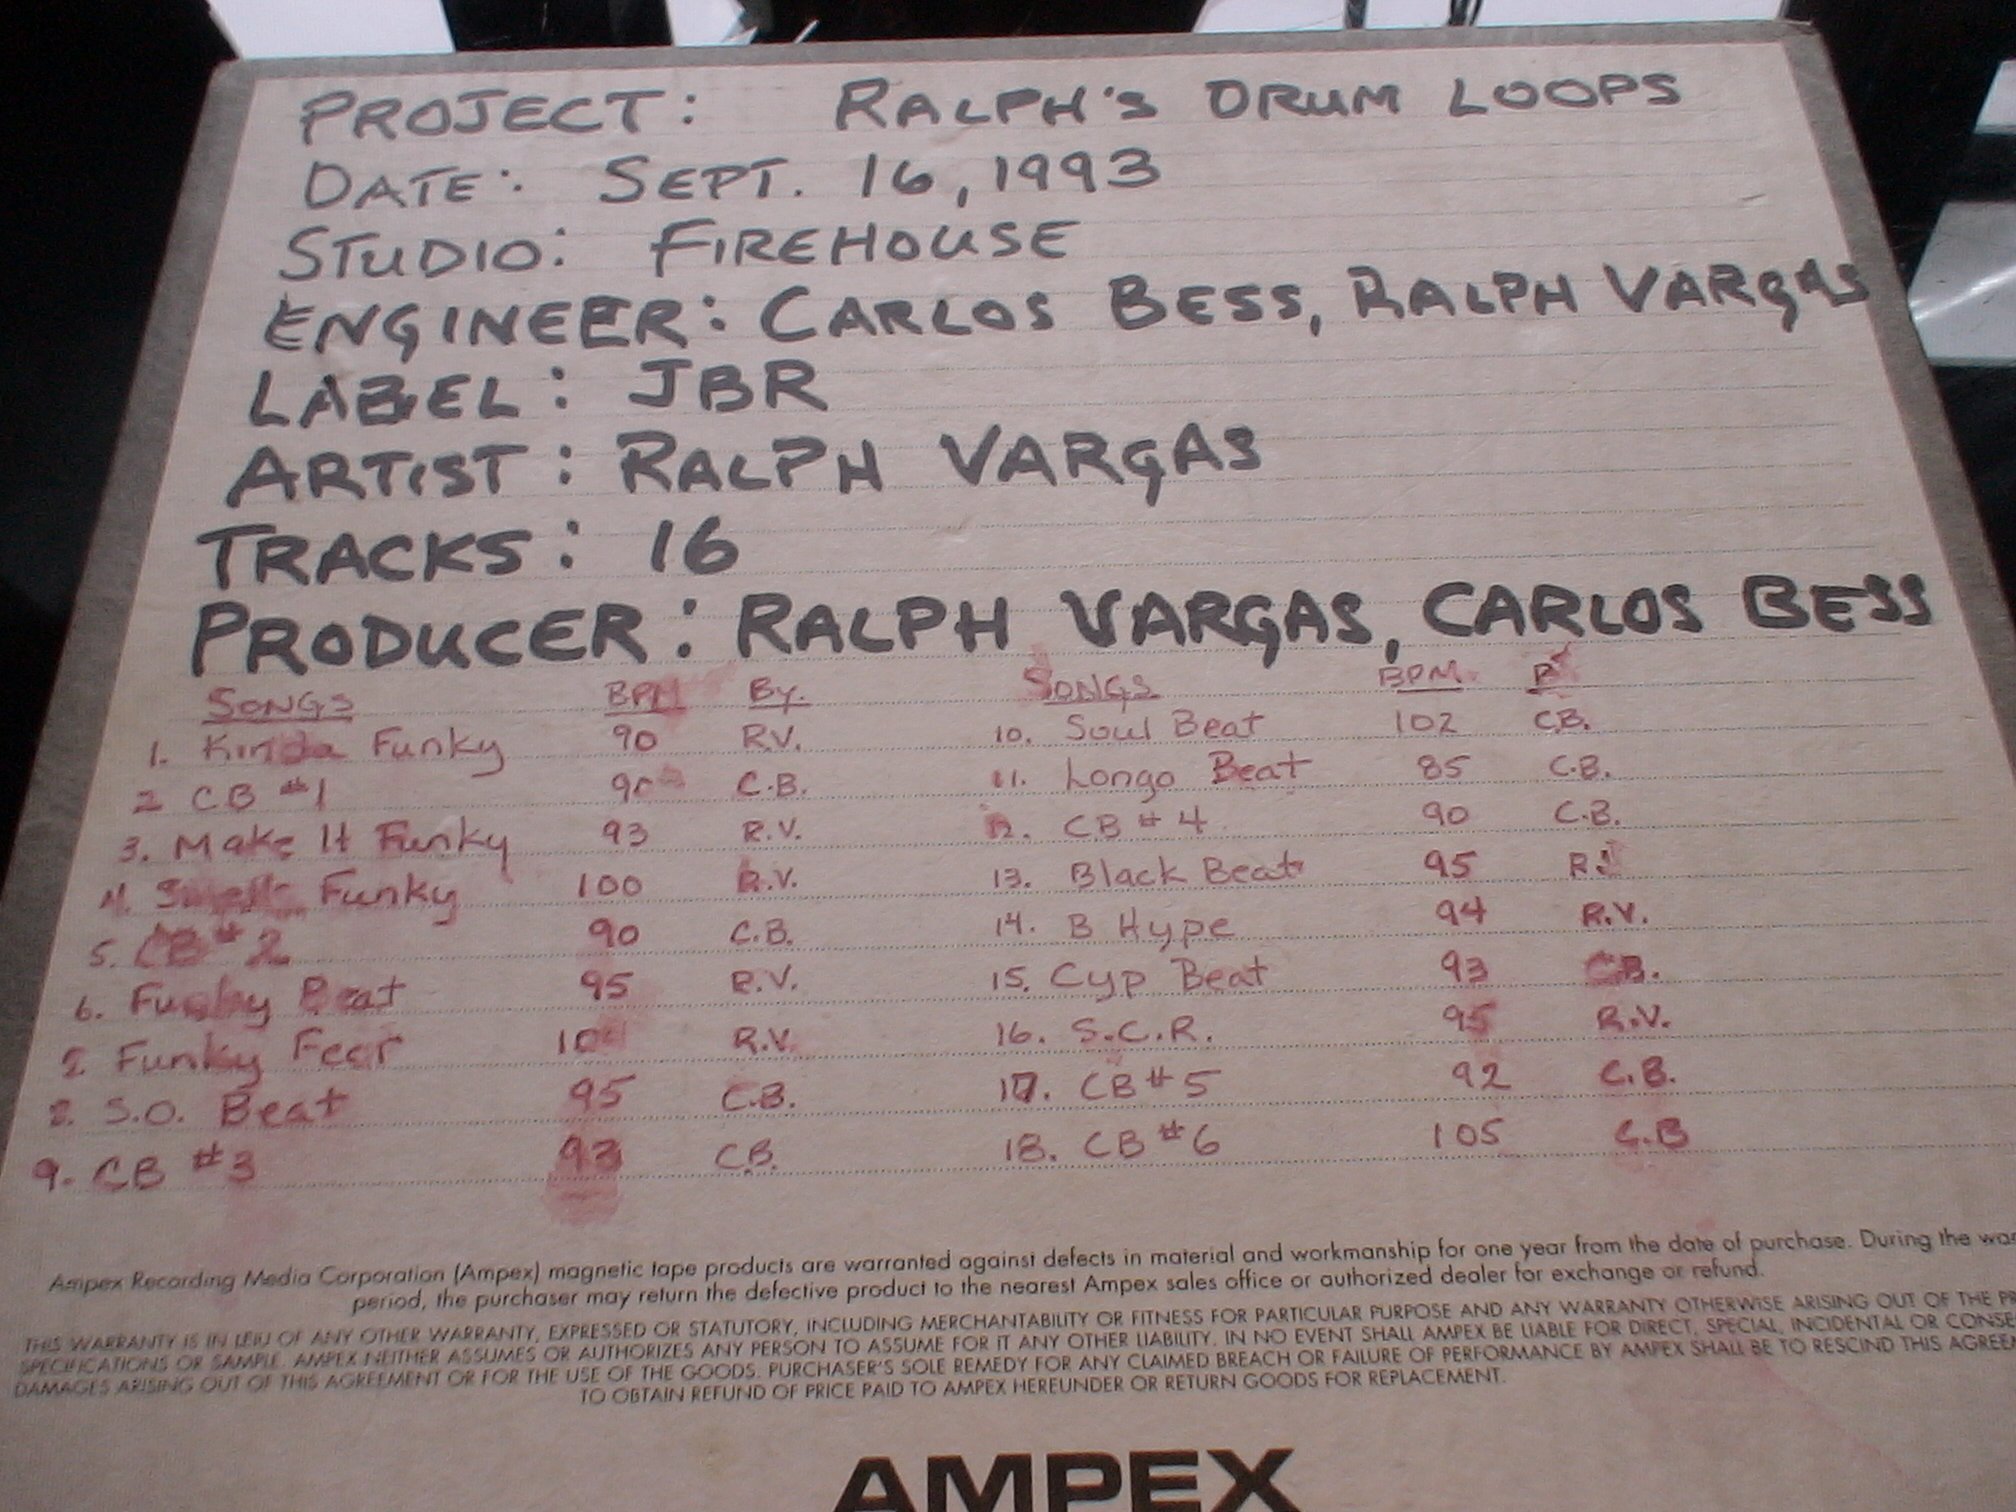 PROJECT: RALPH'S DRUM LOOPS
DATE: SEPT. 16, 1993
STUDIO: FIREHOUSE
ENGINEER: CARLOS BESS, RALPH VARGAS
LABEL: JBR
ARTIST: RALPH VARGAS
TRACKS: 16
PRODUCER: RALPH VARGAS, CARLOS BESS
SONGS BPM By. SONGS BPM.
1. Kinda Funky 90 R.V. 10. Soul Beat 102 C.B.
2 CB #1 90 C.B. 11. Longo Beat 85 C.B.
3. Make It Funky 93 R.V. 12. CB #4 90 C.B.
4. Funky 100 R.V. 13. Black Beat 95
5. CB #2 90 C.B. 14. B Hype 94 R.V.
6. Funky Beat 95 R.V. 15. Cyp Beat 93 C.B.
7. Funky Fear R.V. 16. S.C.R. 95 R.V.
8. S.O. Beat 95 C.B. 17. CB #5 92 C.B.
9. CB #3 93 C.B. 18. CB #6 105 C.B
Ampex Recording Media Corporation (Ampex) magnetic tape products are warranted against defects in material and workmanship for one year from the date of purchase. During the
period, the purchaser may return the defective product to the nearest Ampex sales office or authorized dealer for exchange or refund.
THIS WARRANTY IS IN LEIU OF ANY OTHER WARRANTY, EXPRESSED OR STATUTORY, INCLUDING MERCHANTABILITY OR FITNESS FOR PARTICULAR PURPOSE AND ANY WARRANTY OTHERWISE ARISING OUT OF THE
SPECIFICATIONS OR SAMPLE. AMPEX NEITHER ASSUMES OR AUTHORIZES ANY PERSON TO ASSUME FOR IT ANY OTHER LIABILITY. IN NO EVENT SHALL AMPEX BE LIABLE FOR DIRECT, SPECIAL, INCIDENTAL OR
DAMAGES ARISING OUT OF THIS AGREEMENT OR FOR THE USE OF THE GOODS. PURCHASER'S SOLE REMEDY FOR ANY CLAIMED BREACH OR FAILURE OF PERFORMANCE BY AMPEX SHALL BE TO RESCIND THIS
TO OBTAIN REFUND OF PRICE PAID TO AMPEX HEREUNDER OR RETURN GOODS FOR REPLACEMENT.
AMPEX